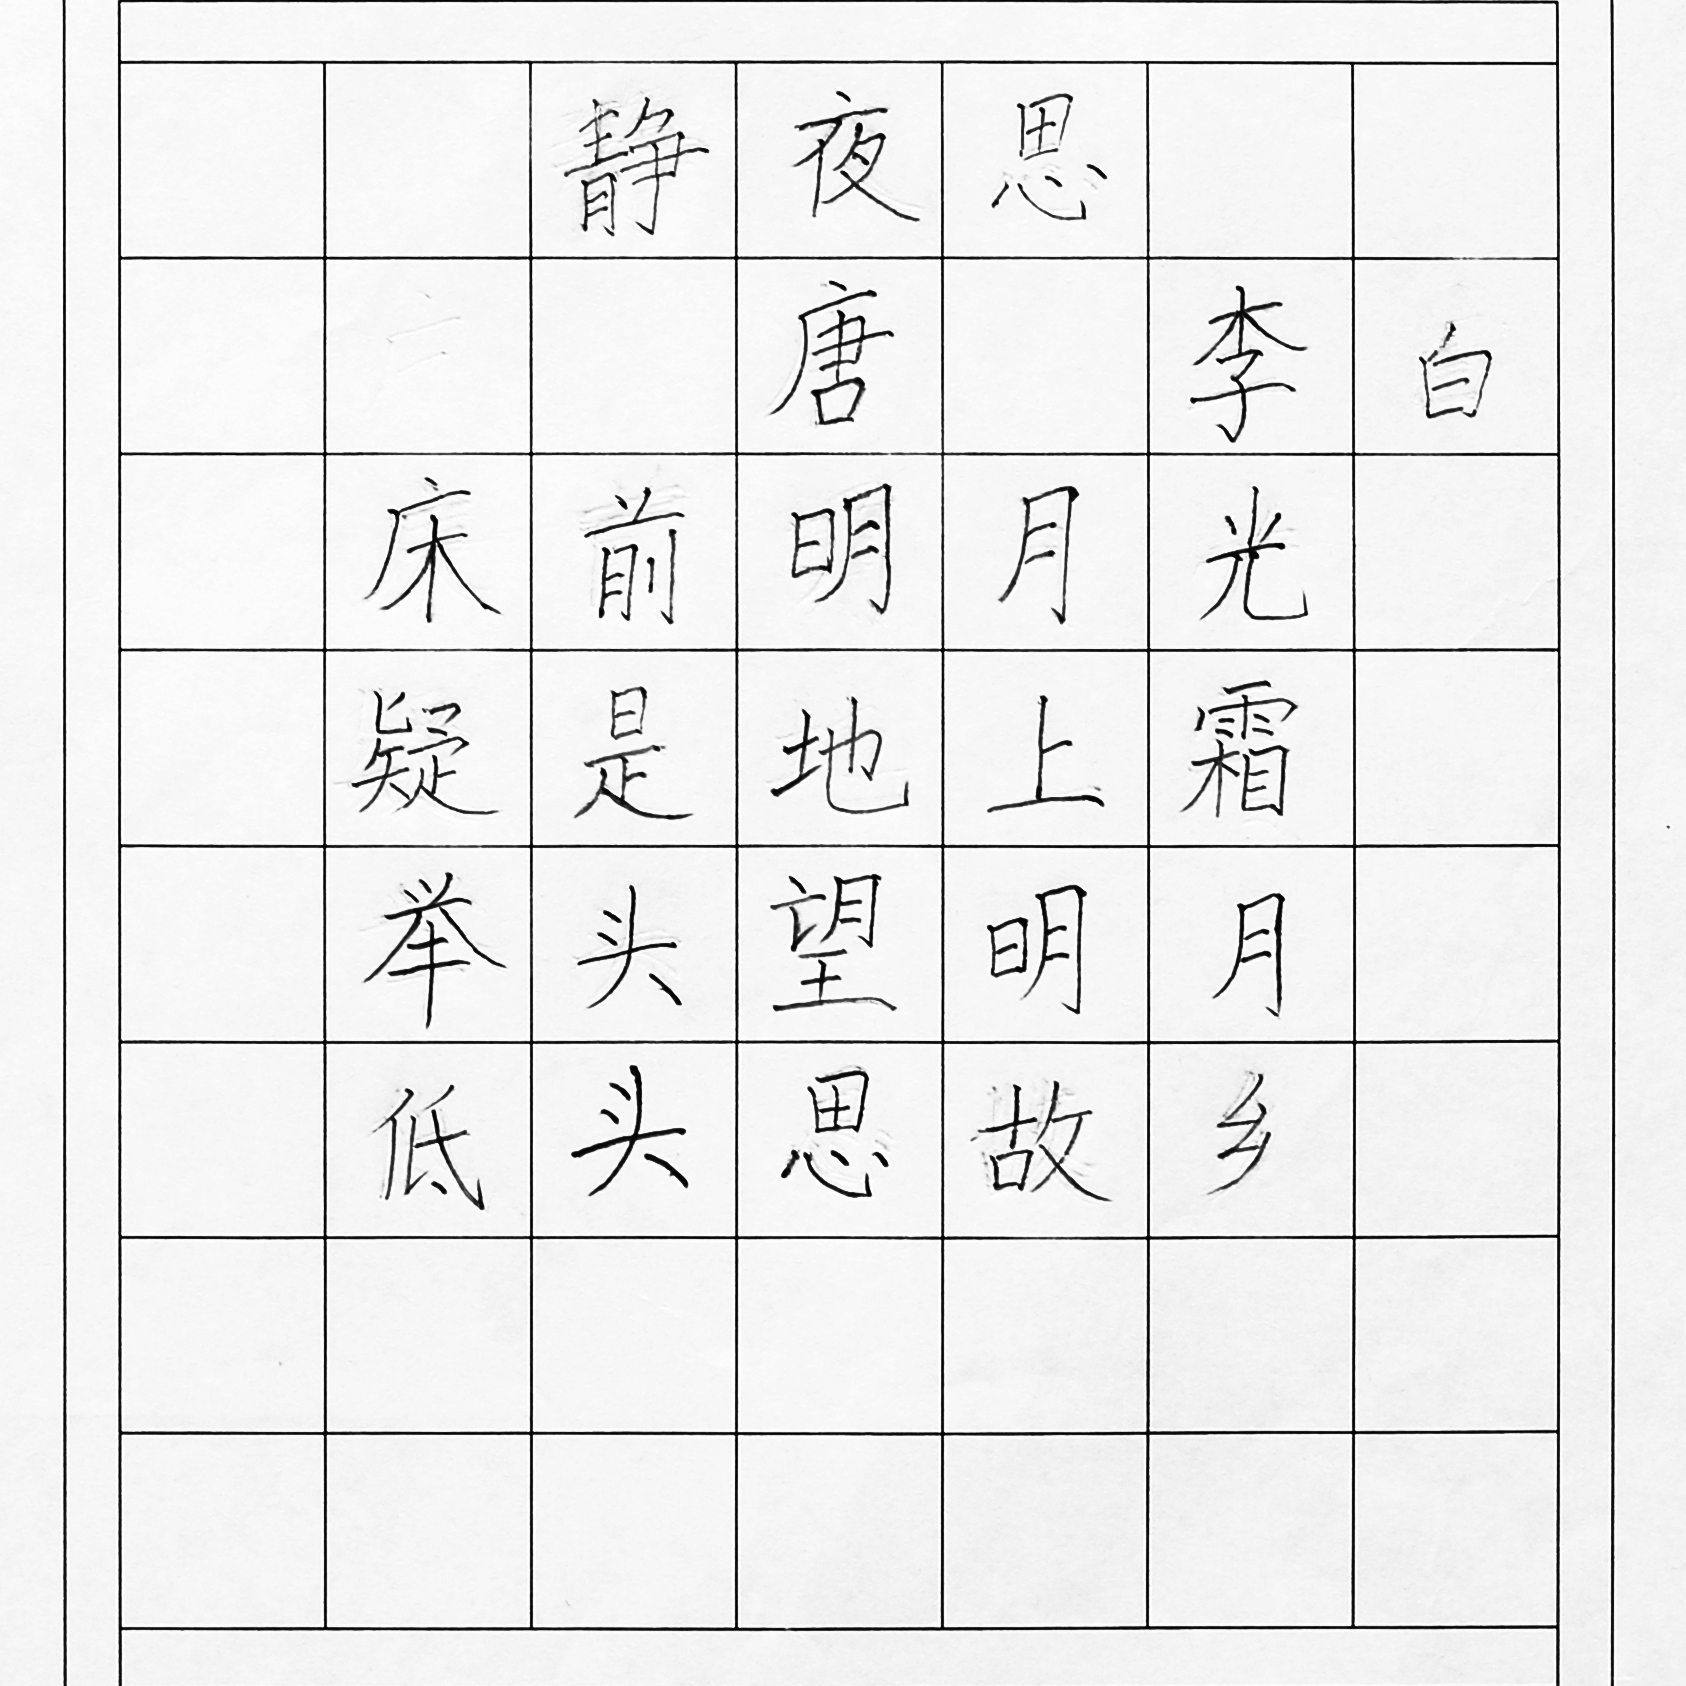 静夜思
唐 李白
床前明月光
疑是地上霜
举头望明月
低头思故乡